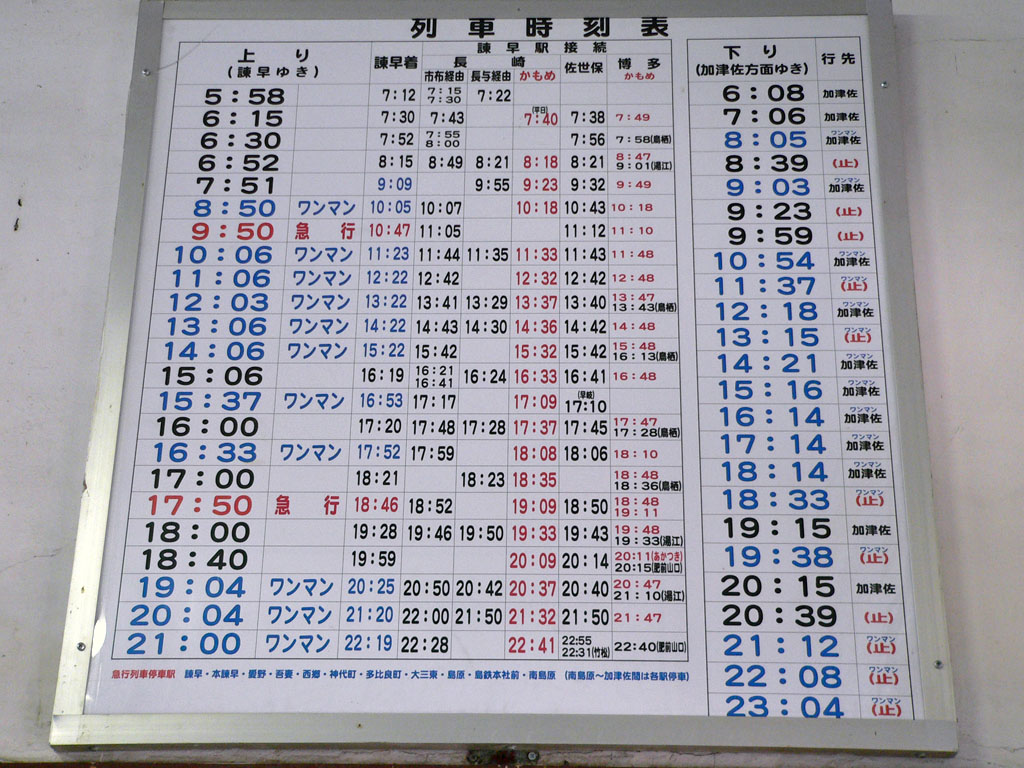 列車時刻表
上り
(諫早ゆき)
諫早着
諫早駅接続
長崎
市布経由 長与経由 かもめ
佐世保
博多
かもめ
5:58 7:12 7:15 7:30 7:22
6:15 7:30 7:43 (平日) 7:40 7:38 7:49
6:30 7:52 7:55 8:00 7:56 7:58(鳥栖)
6:52 8:15 8:49 8:21 8:18 8:21 8:47 9:01(湯江)
7:51 9:09 9:55 9:23 9:32 9:49
8:50 ワンマン 10:05 10:07 10:18 10:43 10:18
9:50 急行 10:47 11:05 11:12 11:10
10:06 ワンマン 11:23 11:44 11:35 11:33 11:43 11:48
11:06 ワンマン 12:22 12:42 12:32 12:42 12:48
12:03 ワンマン 13:22 13:41 13:29 13:37 13:40 13:47 13:43(鳥栖)
13:06 ワンマン 14:22 14:43 14:30 14:36 14:42 14:48
14:06 ワンマン 15:22 15:42 15:32 15:42 15:48 16:13(鳥栖)
15:06 16:19 16:21 16:41 16:24 16:33 16:41 16:48
15:37 ワンマン 16:53 17:17 17:09 (早岐) 17:10
16:00 17:20 17:48 17:28 17:37 17:45 17:47 17:28(鳥栖)
16:33 ワンマン 17:52 17:59 18:08 18:06 18:10
17:00 18:21 18:23 18:35 18:48 18:36(鳥栖)
17:50 急行 18:46 18:52 19:09 18:50 18:48 19:11
18:00 19:28 19:46 19:50 19:33 19:43 19:48 19:33(湯江)
18:40 19:59 20:09 20:14 20:11(あかつき) 20:15(肥前山口)
19:04 ワンマン 20:25 20:50 20:42 20:37 20:40 20:47 21:10(湯江)
20:04 ワンマン 21:20 22:00 21:50 21:32 21:50 21:47
21:00 ワンマン 22:19 22:28 22:41 22:55 22:31(竹松) 22:40(肥前山口)
急行列車停車駅 諫早・本諫早・愛野・吾妻・西郷・神代町・多比良町・大三東・島原・島鉄本社前・南島原 (南島原〜加津佐間は各駅停車)
下り
(加津佐方面ゆき)
行先
6:08 加津佐
7:06 加津佐
8:05 ワンマン 加津佐
8:39 (止)
9:03 ワンマン 加津佐
9:23 (止)
9:59 (止)
10:54 ワンマン 加津佐
11:37 ワンマン (止)
12:18 ワンマン 加津佐
13:15 ワンマン (止)
14:21 ワンマン 加津佐
15:16 ワンマン 加津佐
16:14 ワンマン 加津佐
17:14 ワンマン 加津佐
18:14 ワンマン 加津佐
18:33 ワンマン (止)
19:15 加津佐
19:38 ワンマン (止)
20:15 加津佐
20:39 (止)
21:12 ワンマン (止)
22:08 ワンマン (止)
23:04 ワンマン (止)